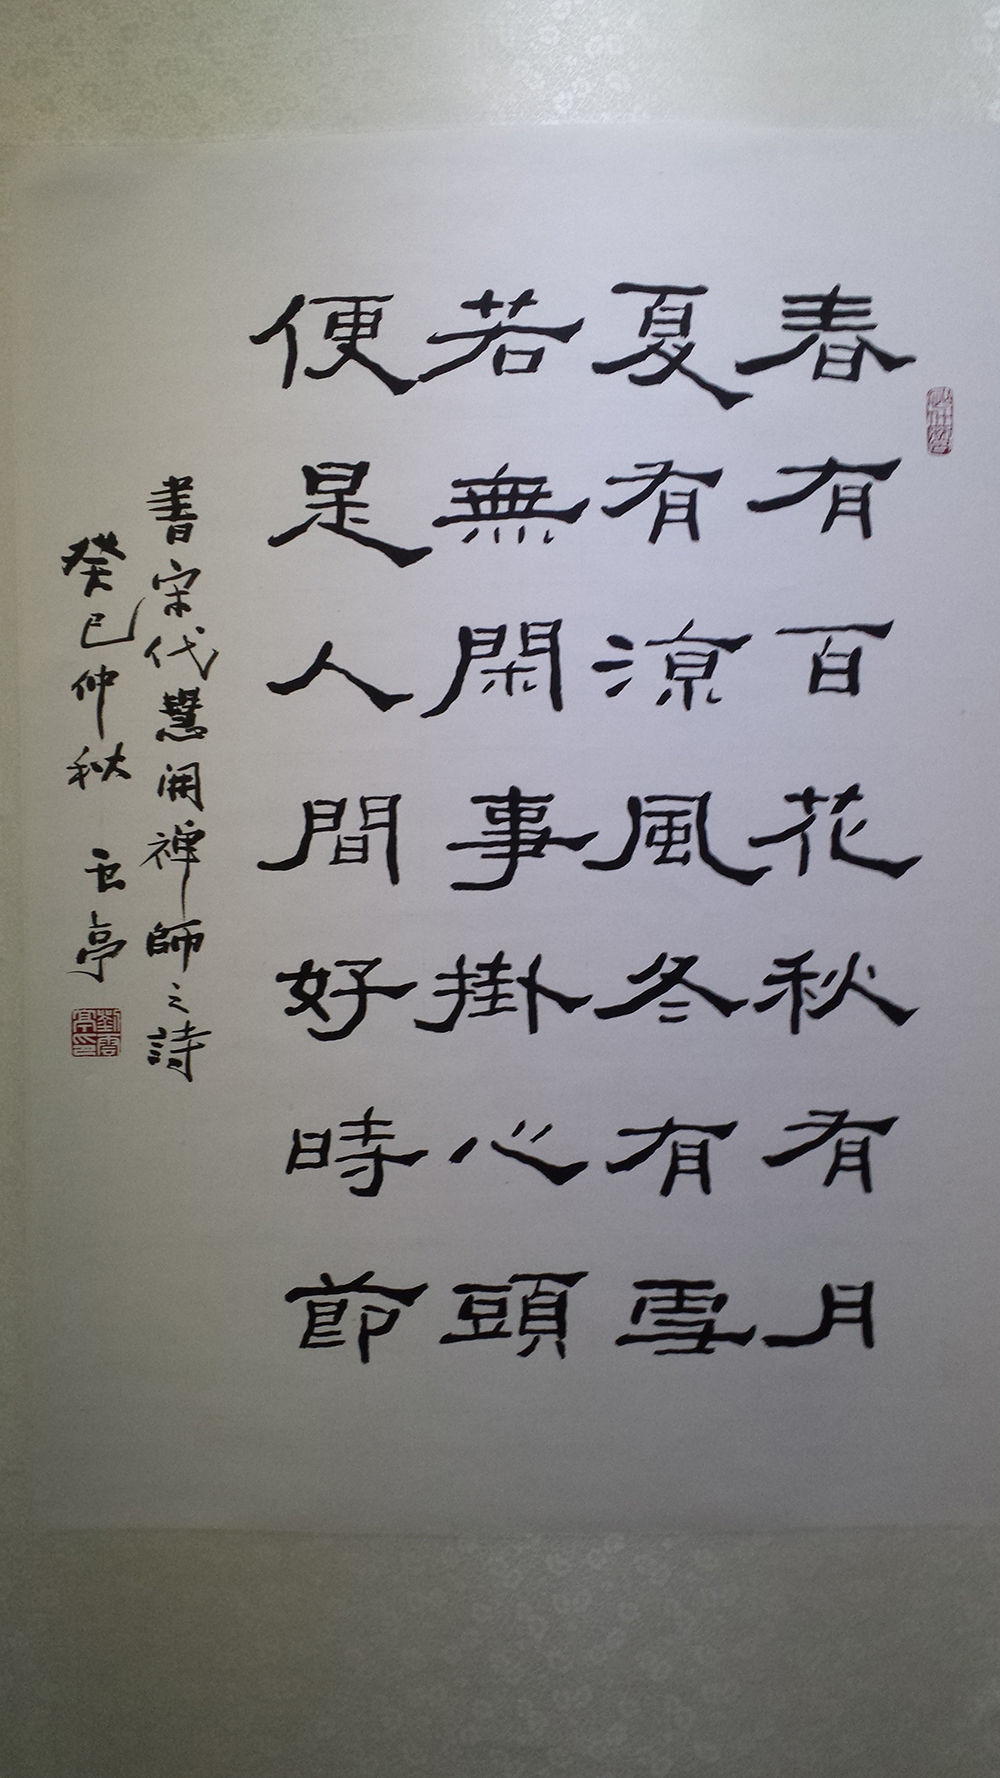 春有百花秋有月
夏有涼風冬有雪
若無閑事掛心頭
便是人間好時節
書宋代慧開禪師之詩
癸巳仲秋 云亭